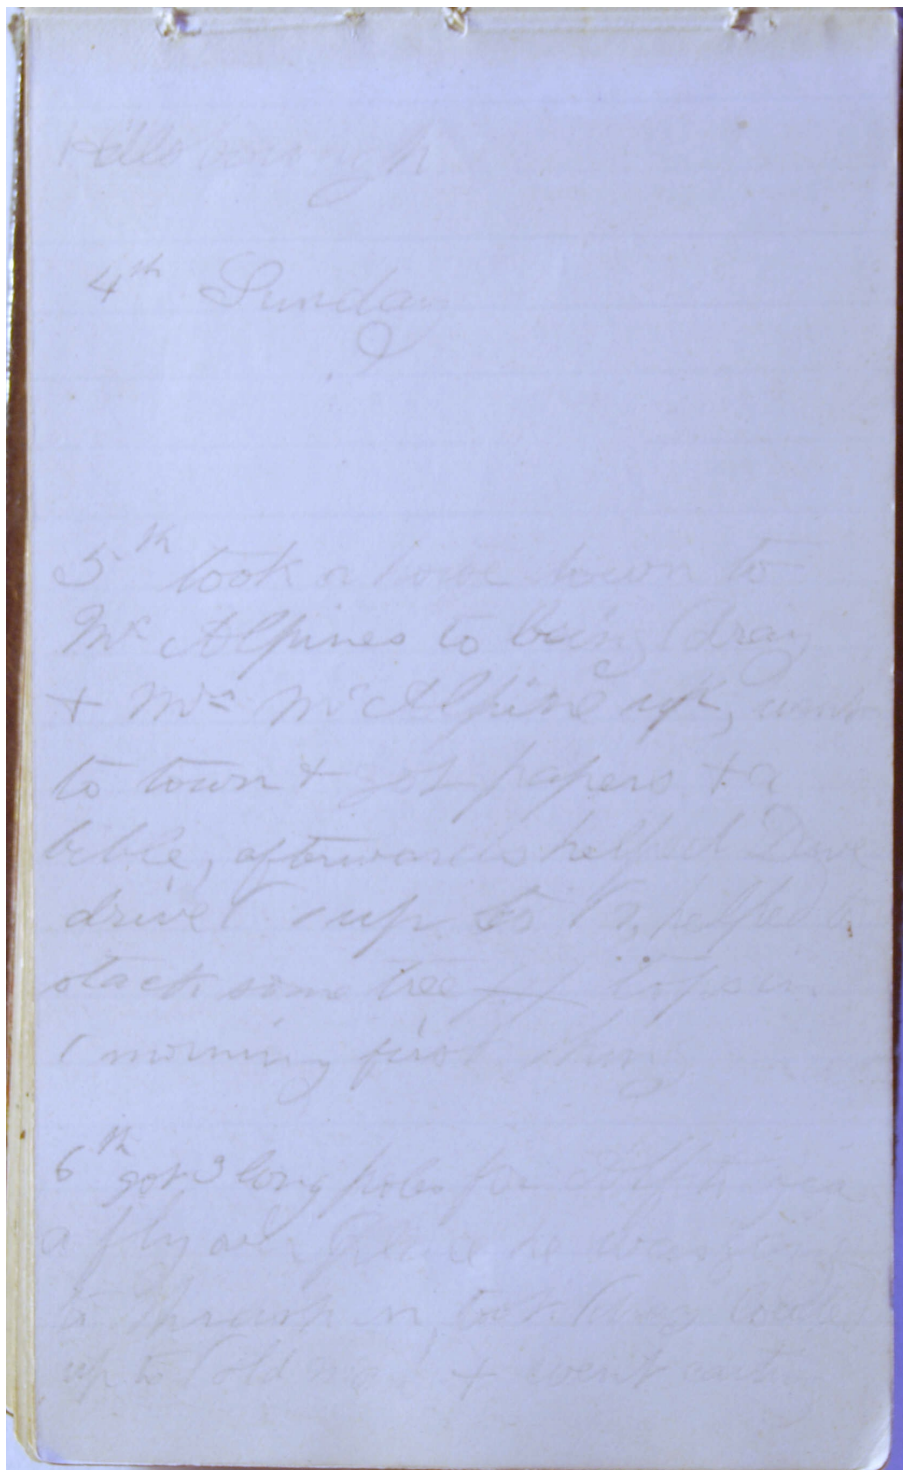 4th Sunday
5th took a horse down to
Mc Alpines to bring (dray
+ Mrs McAlpine up, went
to town + got papers + a
bible, afterwards helped Dave
drive ( up to ( helped
stack some tree tops in
( morning first thing
6th got 3 long poles for Alf to
a fly over place he was going
to thrash in, took (dray
up to ( old + went